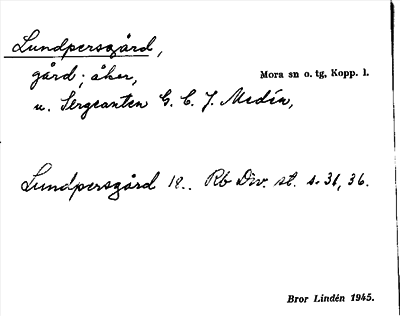 Lundpersgård,
gård; åker,
Mora sn o. tg, Kopp. l.
u. Sergeanten G. C. J. Medin,
Lundpersgård 18.. Rb Div. st. s. 31, 36.
Bror Lindén 1945.